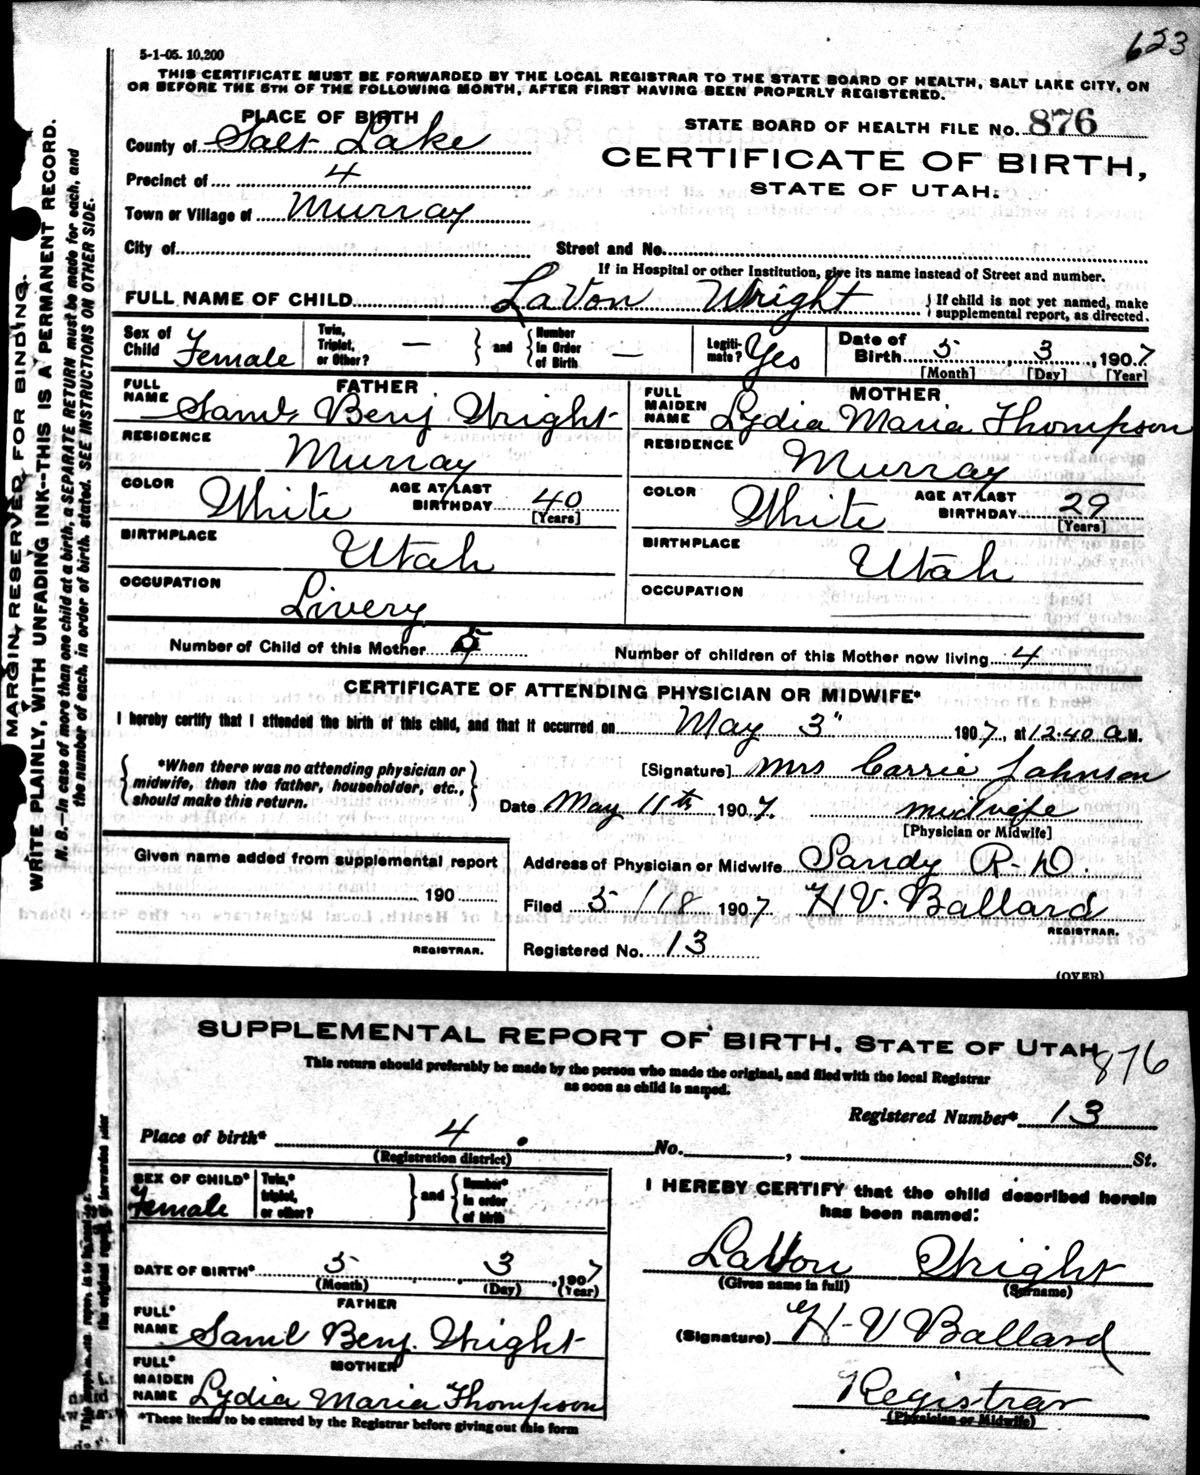 623
5-1-05. 10,200
THIS CERTIFICATE MUST BE FORWARDED BY THE LOCAL REGISTRAR TO THE STATE BOARD OF HEALTH, SALT LAKE CITY, ON
OR BEFORE THE 5TH OF THE FOLLOWING MONTH, AFTER FIRST HAVING BEEN PROPERLY REGISTERED.
PLACE OF BIRTH
STATE BOARD OF HEALTH FILE No. 876
County of Salt Lake
CERTIFICATE OF BIRTH,
STATE OF UTAH.
Precinct of 4
Town or Village of Murray
City of
Street and No.
If in Hospital or other Institution, give its name instead of Street and number.
FULL NAME OF CHILD LaVon Wright
If child is not yet named, make
supplemental report, as directed.
Sex of Child Female
Twin, Triplet, or Other? —
and
Number in Order of Birth —
Legitimate? Yes
Date of Birth 5, 3, 1907
[Month] [Day] [Year]
FATHER
FULL NAME Saml Benj Wright
RESIDENCE Murray
COLOR White
AGE AT LAST BIRTHDAY 40
[Years]
BIRTHPLACE Utah
OCCUPATION Livery
MOTHER
FULL MAIDEN NAME Lydia Maria Thompson
RESIDENCE Murray
COLOR White
AGE AT LAST BIRTHDAY 29
[Years]
BIRTHPLACE Utah
OCCUPATION
Number of Child of this Mother 5
Number of children of this Mother now living 4
CERTIFICATE OF ATTENDING PHYSICIAN OR MIDWIFE*
I hereby certify that I attended the birth of this child, and that it occurred on May 3" 1907, at 12.40 a.M.
*When there was no attending physician or
midwife, then the father, householder, etc.,
should make this return.
[Signature] Mrs Carrie Johnson
Date May 11th 1907.
midwife
[Physician or Midwife]
Given name added from supplemental report
190
REGISTRAR.
Address of Physician or Midwife Sandy R-D.
Filed 5/18 1907 H V. Ballard
REGISTRAR.
Registered No. 13
(OVER)
MARGIN RESERVED FOR BINDING.
WRITE PLAINLY, WITH UNFADING INK--THIS IS A PERMANENT RECORD.
N. B.--In case of more than one child at a birth, a SEPARATE RETURN must be made for each, and
the number of each, in order of birth, stated. SEE INSTRUCTIONS ON OTHER SIDE.
SUPPLEMENTAL REPORT OF BIRTH, STATE OF UTAH
876
This return should preferably be made by the person who made the original, and filed with the local Registrar
as soon as child is named.
Registered Number* 13
Place of birth* 4 No. , St.
(Registration district)
SEX OF CHILD* Female
Twin,* triplet, or other?
and
Number* in order of birth
DATE OF BIRTH* 5, 3, 1907
(Month) (Day) (Year)
FATHER
FULL* NAME Saml Benj. Wright
MOTHER
FULL* MAIDEN NAME Lydia Maria Thompson
*These items to be entered by the Registrar before giving out this form
I HEREBY CERTIFY that the child described herein
has been named:
LaVon Wright
(Given name in full) (Surname)
(Signature) H-V Ballard
Registrar
(Physician or Midwife)